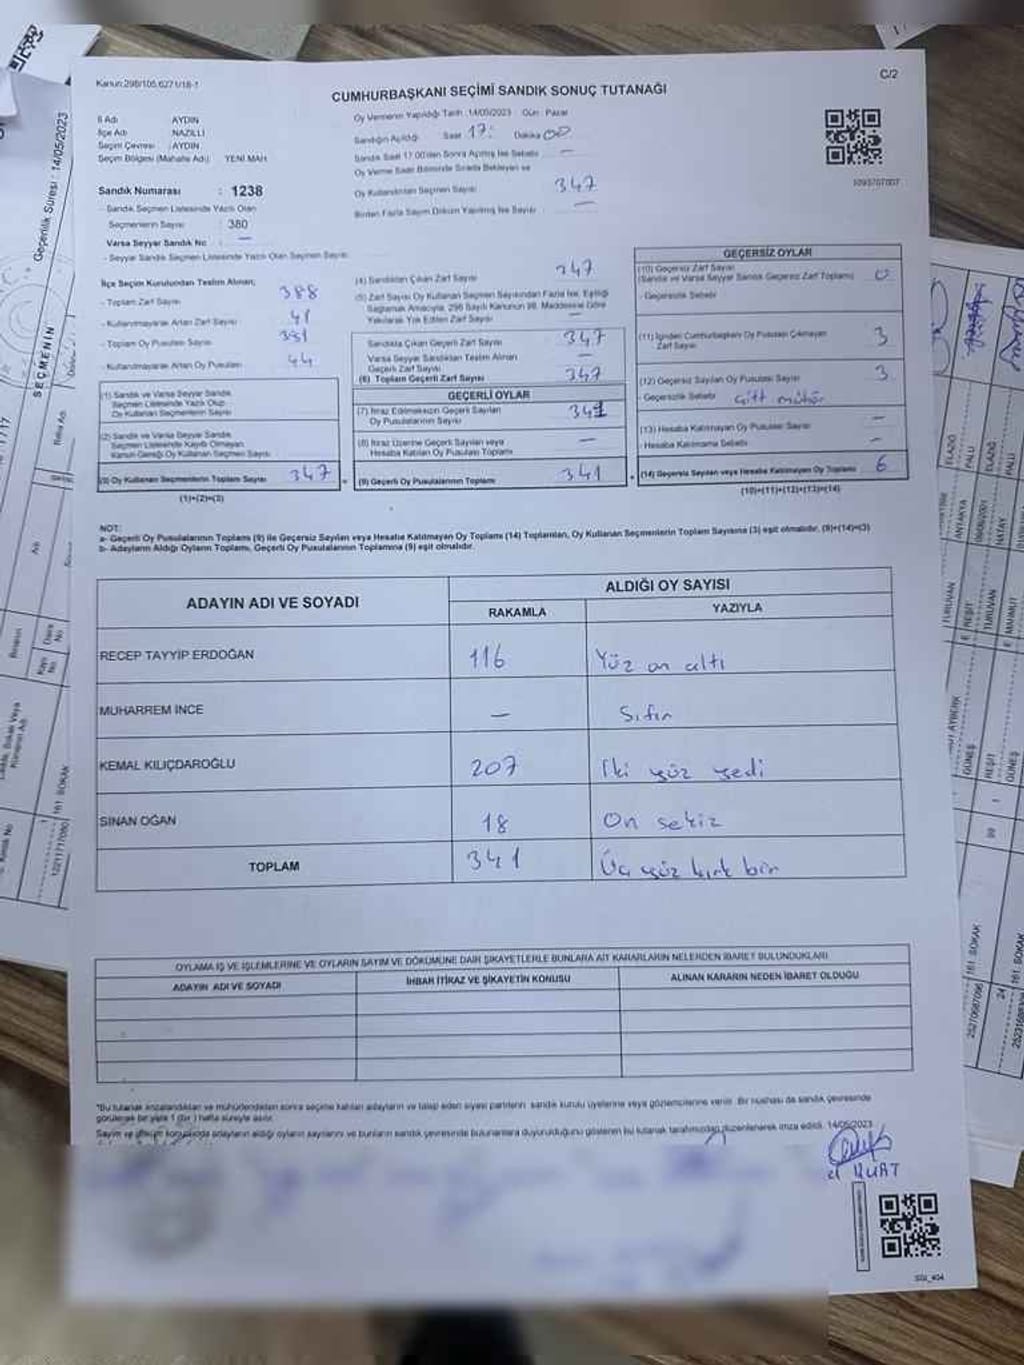 Kanun:298/105;6271/18-1
C/2
CUMHURBAŞKANI SEÇİMİ SANDIK SONUÇ TUTANAĞI
İl Adı AYDIN
İlçe Adı NAZİLLİ
Seçim Çevresi : AYDIN
Seçim Bölgesi (Mahalle Adı) YENİ MAH
Oy Vermenin Yapıldığı Tarih :14/05/2023 Gün : Pazar
Sandığın Açıldığı Saat 17: Dakika 00
Sandık Saat 17:00'den Sonra Açılmış İse Sebebi —
Oy Verme Saati Bitiminde Sırada Bekleyen ve
Oy Kullandırılan Seçmen Sayısı 347
Birden Fazla Sayım Döküm Yapılmış İse Sayısı —
Sandık Numarası : 1238
- Sandık Seçmen Listesinde Yazılı Olan
Seçmenlerin Sayısı : 380
Varsa Seyyar Sandık No : —
- Seyyar Sandık Seçmen Listesinde Yazılı Olan Seçmen Sayısı:
İlçe Seçim Kurulundan Teslim Alınan;
- Toplam Zarf Sayısı 388
- Kullanılmayarak Artan Zarf Sayısı 41
- Toplam Oy Pusulası Sayısı
- Kullanılmayarak Artan Oy Pusulası 44
(1) Sandık ve Varsa Seyyar Sandık
Seçmen Listesinde Yazılı Olup
Oy Kullanan Seçmenlerin Sayısı
(2) Sandık ve Varsa Seyyar Sandık
Seçmen Listesinde Kayıtlı Olmayan
Kanun Gereği Oy Kullanan Seçmen Sayısı
(3) Oy Kullanan Seçmenlerin Toplam Sayısı 347
(1)+(2)=(3)
(4) Sandıktan Çıkan Zarf Sayısı 347
(5) Zarf Sayısı Oy Kullanan Seçmen Sayısından Fazla İse, Eşitliği
Sağlamak Amacıyla, 298 Sayılı Kanunun 98. Maddesine Göre
Yakılarak Yok Edilen Zarf Sayısı —
Sandıkta Çıkan Geçerli Zarf Sayısı 347
Varsa Seyyar Sandıktan Teslim Alınan
Geçerli Zarf Sayısı —
(6) Toplam Geçerli Zarf Sayısı 347
GEÇERLİ OYLAR
(7) İtiraz Edilmeksizin Geçerli Sayılan
Oy Pusulalarının Sayısı 341
(8) İtiraz Üzerine Geçerli Sayılan veya
Hesaba Katılan Oy Pusulası Toplamı —
(9) Geçerli Oy Pusulalarının Toplamı 341
GEÇERSİZ OYLAR
(10) Geçersiz Zarf Sayısı
(Sandık ve Varsa Seyyar Sandık Geçersiz Zarf Toplamı) 0
- Geçersizlik Sebebi
(11) İçinden Cumhurbaşkanı Oy Pusulası Çıkmayan
Zarf Sayısı 3
(12) Geçersiz Sayılan Oy Pusulası Sayısı 3
- Geçersizlik Sebebi Çift mühür
(13) Hesaba Katılmayan Oy Pusulası Sayısı —
- Hesaba Katılmama Sebebi —
(14) Geçersiz Sayılan veya Hesaba Katılmayan Oy Toplamı 6
(10)+(11)+(12)+(13)=(14)
NOT:
a- Geçerli Oy Pusulalarının Toplamı (9) ile Geçersiz Sayılan veya Hesaba Katılmayan Oy Toplamı (14) Toplamları, Oy Kullanan Seçmenlerin Toplam Sayısına (3) eşit olmalıdır. (9)+(14)=(3)
b- Adayların Aldığı Oyların Toplamı, Geçerli Oy Pusulalarının Toplamına (9) eşit olmalıdır.
ADAYIN ADI VE SOYADI
ALDIĞI OY SAYISI
RAKAMLA YAZIYLA
RECEP TAYYİP ERDOĞAN 116 Yüz on altı
MUHARREM İNCE — Sıfır
KEMAL KILIÇDAROĞLU 207 İki yüz yedi
SİNAN OĞAN 18 On sekiz
TOPLAM 341 Üç yüz kırk bir
OYLAMA İŞ VE İŞLEMLERİNE VE OYLARIN SAYIM VE DÖKÜMÜNE DAİR ŞİKAYETLERLE BUNLARA AİT KARARLARIN NELERDEN İBARET BULUNDUKLARI
ADAYIN ADI VE SOYADI
İHBAR İTİRAZ VE ŞİKAYETİN KONUSU
ALINAN KARARIN NEDEN İBARET OLDUĞU
*Bu tutanak imzalandıktan ve mühürlendikten sonra seçime katılan adayların ve talep eden siyasi partilerin sandık kurulu üyelerine veya gözlemcilerine verilir. Bir nüshası da sandık çevresinde
görülecek bir yere 1 (bir) hafta süreyle asılır.
Sayım ve döküm sonucunda adayların aldığı oyların sayılarını ve bunların sandık çevresinde bulunanlara duyurulduğunu gösteren bu tutanak tarafımızdan düzenlenerek imza edildi. 14/05/2023
KURT
Geçerlilik Süresi : 14/05/2023
SEÇMENİN
Baba Adı
161. SOKAK
ELAZIĞ
PALU
ANTAKYA
HATAY
TURUVAN
REŞİT
MAHMUT
GÜNEŞ
161. SOKAK
24